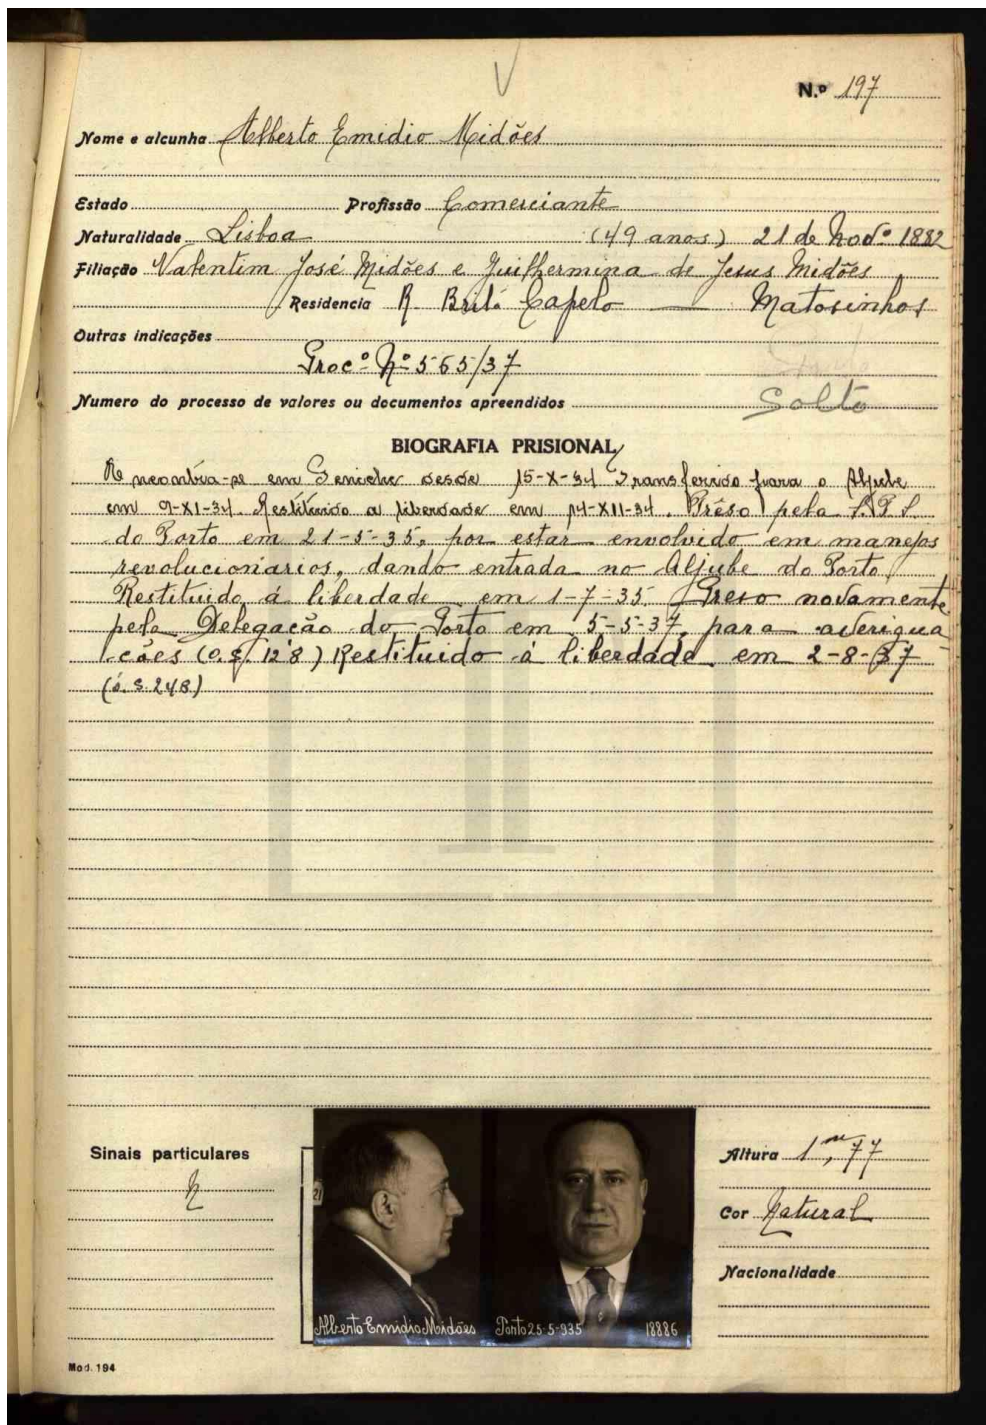 N.º 197
Nome e alcunha Alberto Emidio Midões
Estado Profissão Comerciante
Naturalidade Lisboa (49 anos) 21 de Nov.º 1882
Filiação Valentim José Midões e Guilhermina de Jesus Midões
Residencia R. Brito Capelo — Matosinhos
Outras indicações
Proc.º Nº 565/37
Solto
Numero do processo de valores ou documentos apreendidos
BIOGRAFIA PRISIONAL
Encontra-se em Peniche desde 15-X-34 Transferido para o Aljube
em 9-XI-34. Restituido a liberdade em 14-XII-34. Prêso pela S.P.S.
do Porto em 21-5-35, por estar envolvido em manejos
revolucionários, dando entrada no Aljube do Porto.
Restituido á liberdade em 1-7-35. Preso novamente
pela Delegação do Porto em 5-5-37, para averigua
ções (O.S. 128) Restituido á liberdade em 2-8-37
(O.S. 248)
Sinais particulares
N
21
Alberto Emidio Midões Porto 25-5-935 18886
Altura 1m,77
Cor Natural
Nacionalidade
Mod. 194